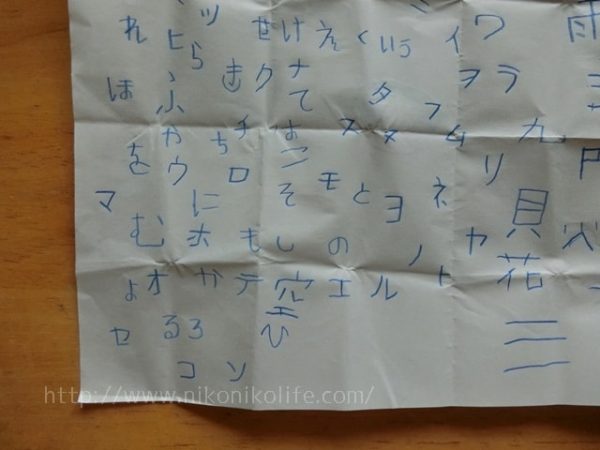 れ ヒ ッ ら せ け え く い う イ ワ 雨
ほ ふ き ク ナ て タ ヲ ラ
を や ウ ち チ は こ ヌ タ フ ム 九
マ に ロ そ モ と ヨ ネ リ 貝
む ホ も し の ノ ヤ
よ オ か テ 空 エ ル ト 花
セ る ろ ひ 三
コ ソ
http://www.nikonikolife.com/